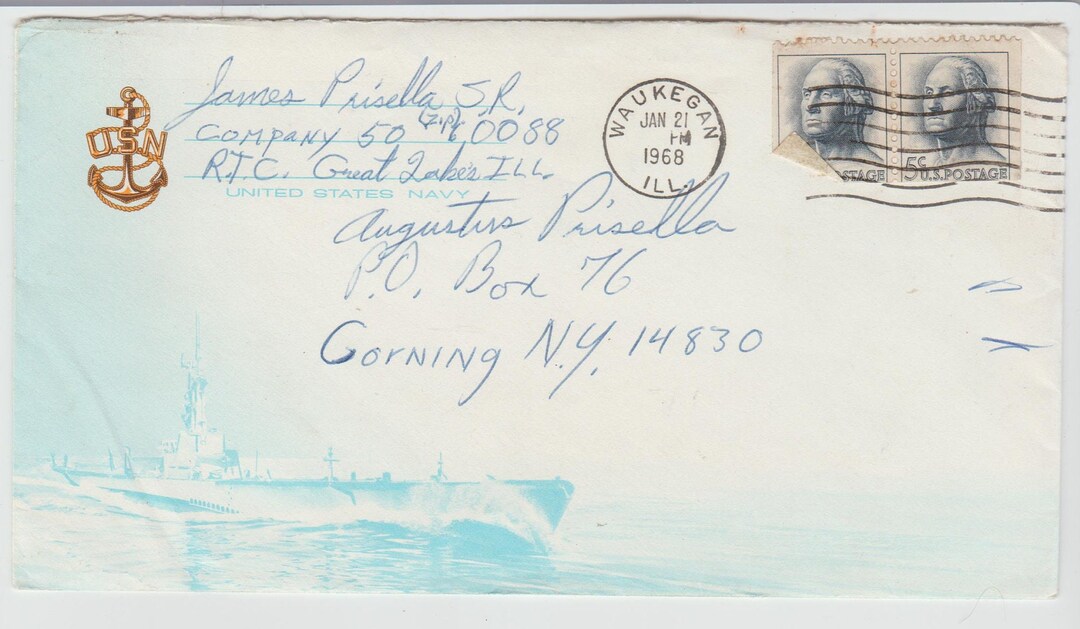 U.S.N
James Prisella S.R.
Company 50 (Zip) 60088
R.T.C. Great Lakes ILL.
UNITED STATES NAVY
WAUKEGAN
JAN 21
PM
1968
ILL.
STAGE
5¢ U.S.POSTAGE
Augustus Prisella
P.O. Box 76
Corning N.Y. 14830